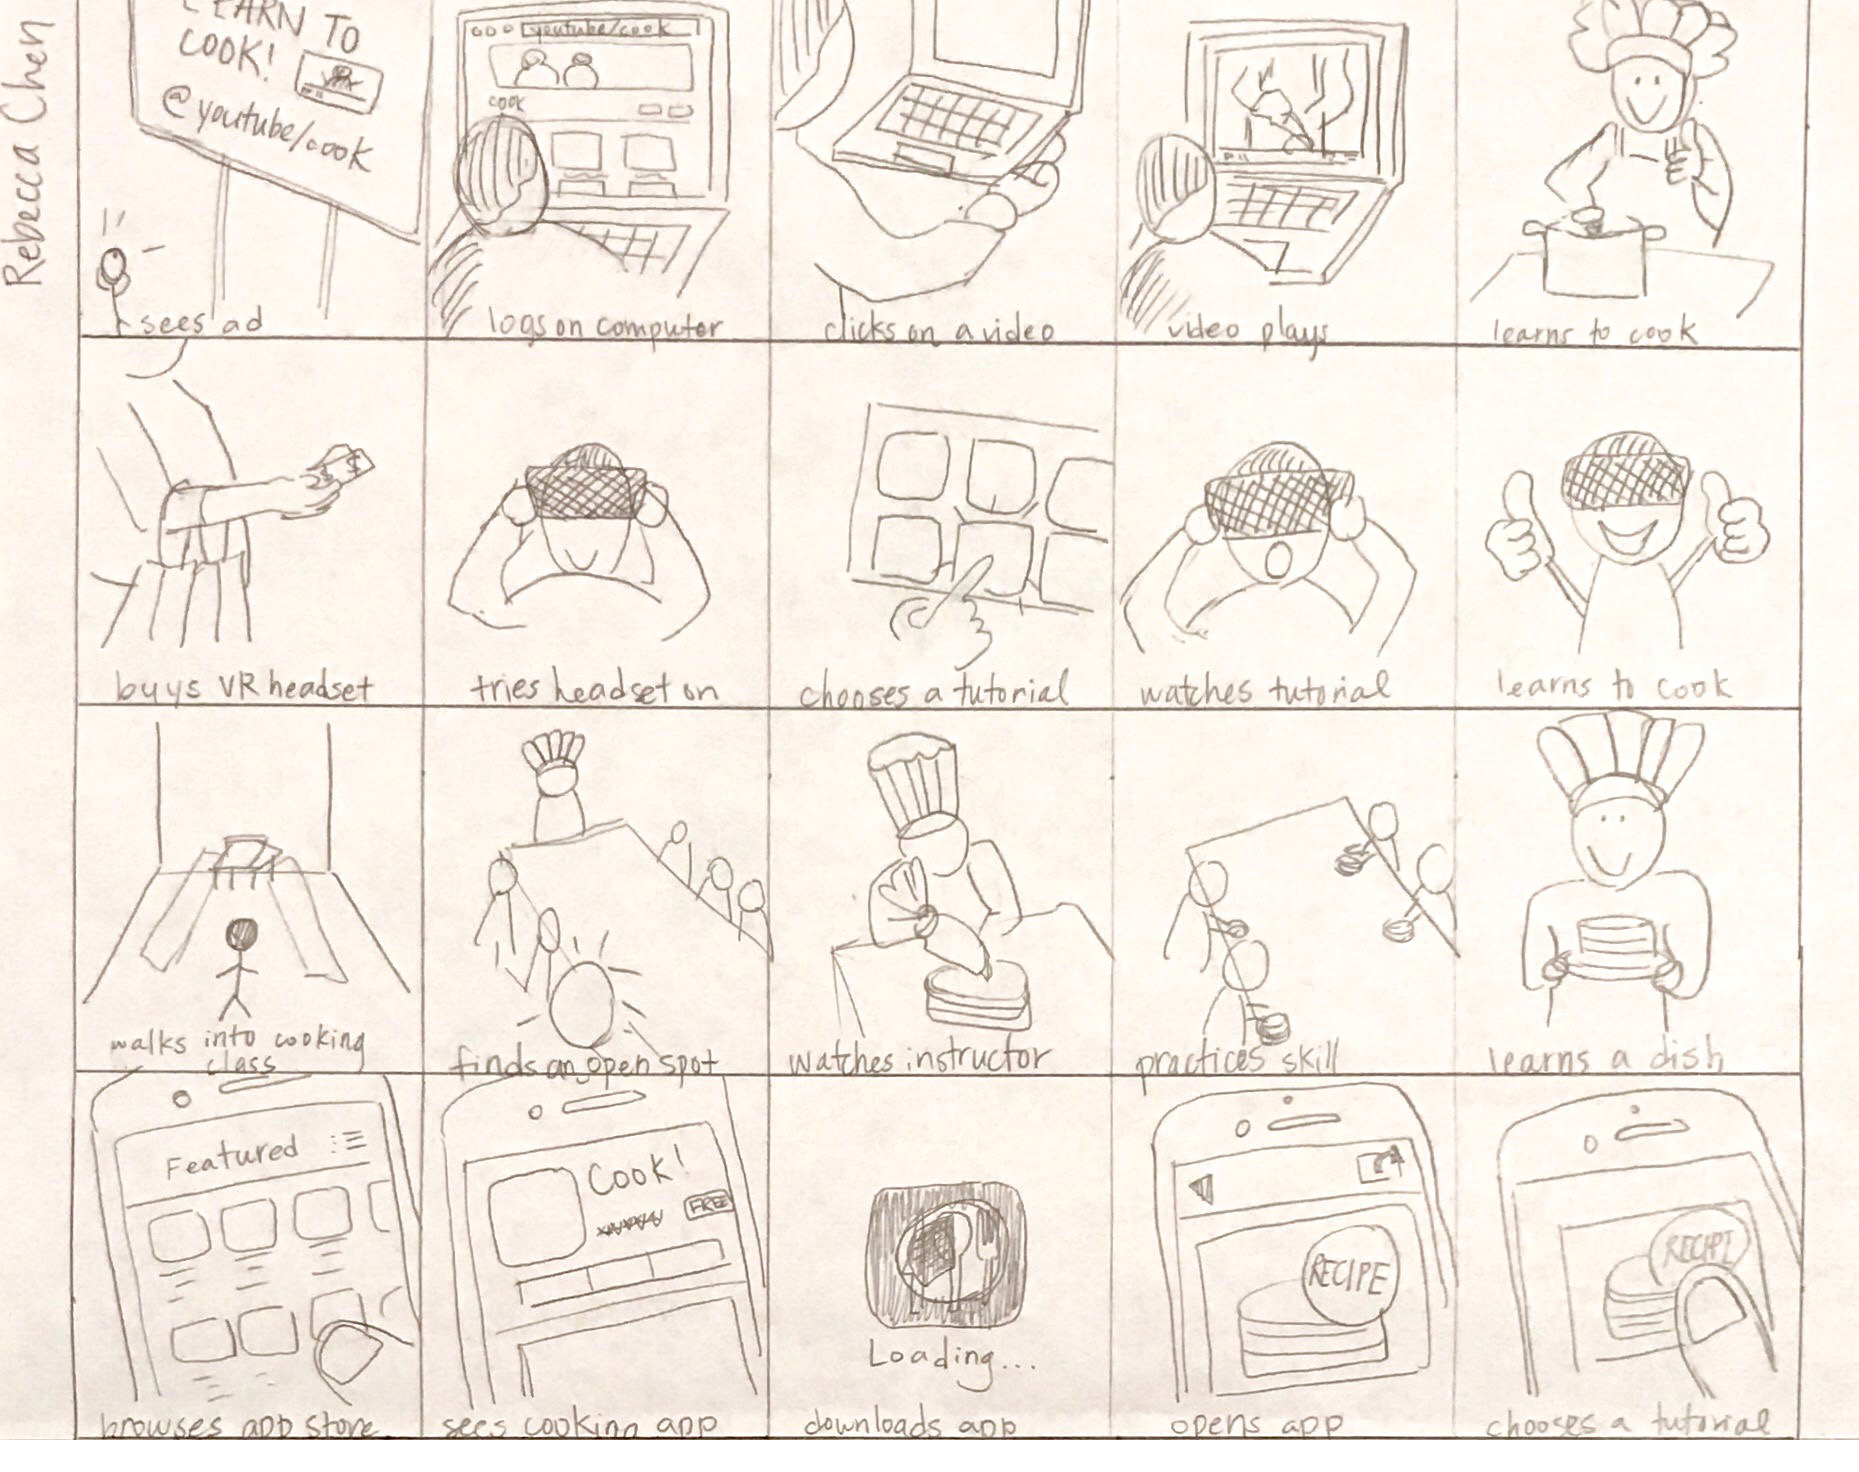 Rebecca Chen
LEARN TO
COOK!
@youtube/cook
sees ad
youtube/cook
cook
logs on computer
clicks on a video
video plays
learns to cook
buys VR headset
tries headset on
chooses a tutorial
watches tutorial
learns to cook
walks into cooking
class
finds an open spot
watches instructor
practices skill
learns a dish
Featured
browses app store
Cook!
FREE
sees cooking app
Loading...
downloads app
RECIPE
opens app
RECIPE
chooses a tutorial